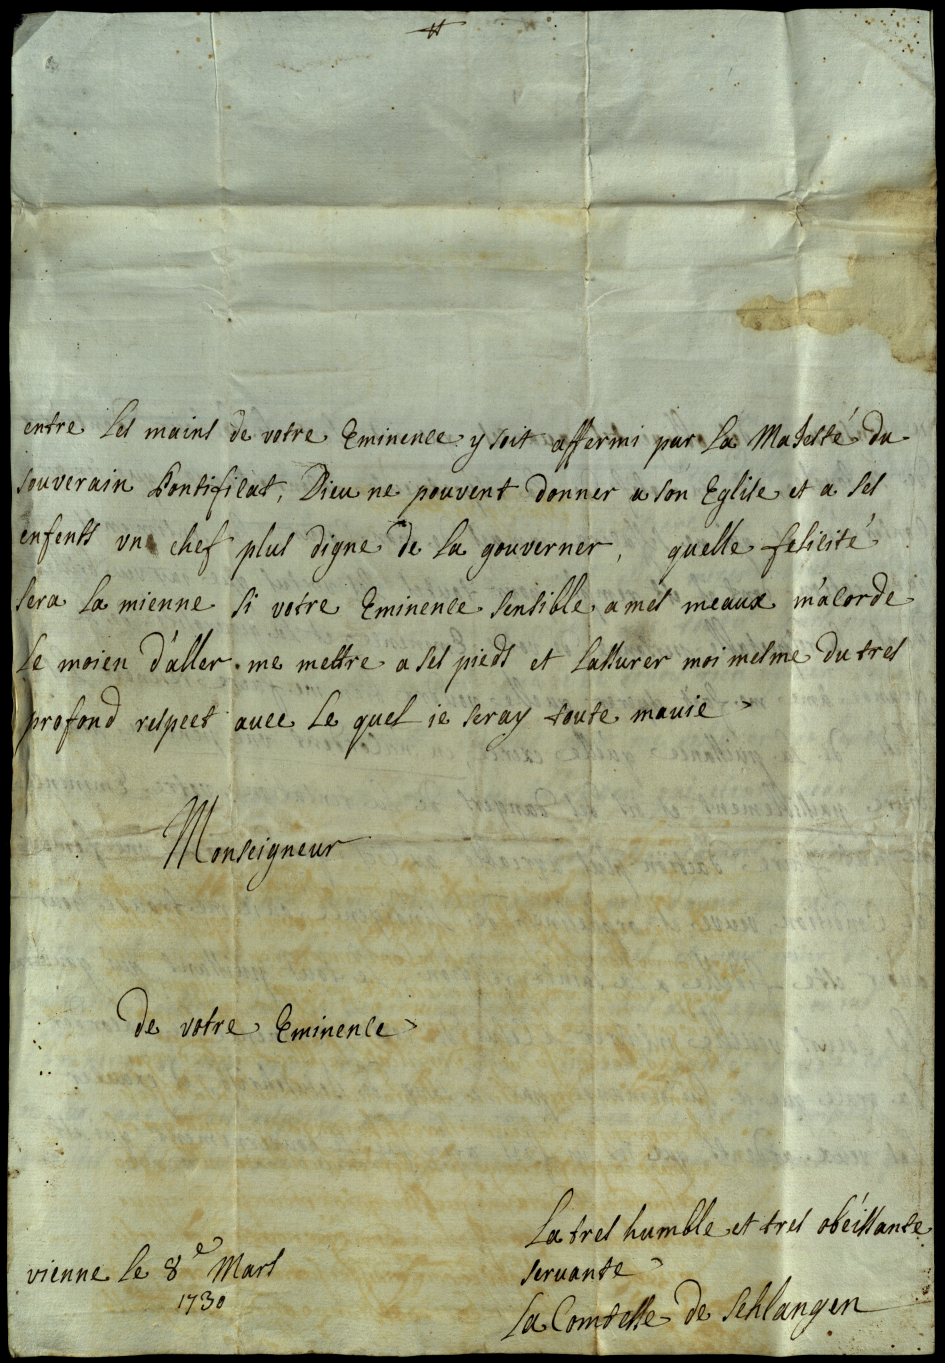 entre ses mains de votre Eminence y soit affermi par la Majesté du
souverain Pontificat, Dieu ne pouvent donner a son Eglise et a ses
enfents un chef plus digne de la gouverner, quelle felicité
sera la mienne si votre Eminence sensible a mes meaux m'acorde
le moien d'aller me mettre a ses pieds et lassurer moi mesme du tres
profond respect avec le quel ie seray toute mavie
Monseigneur
de votre Eminence
La tres humble et tres obéissante
servante
vienne le 8e Mars
1730
La Comtesse de Schlangen